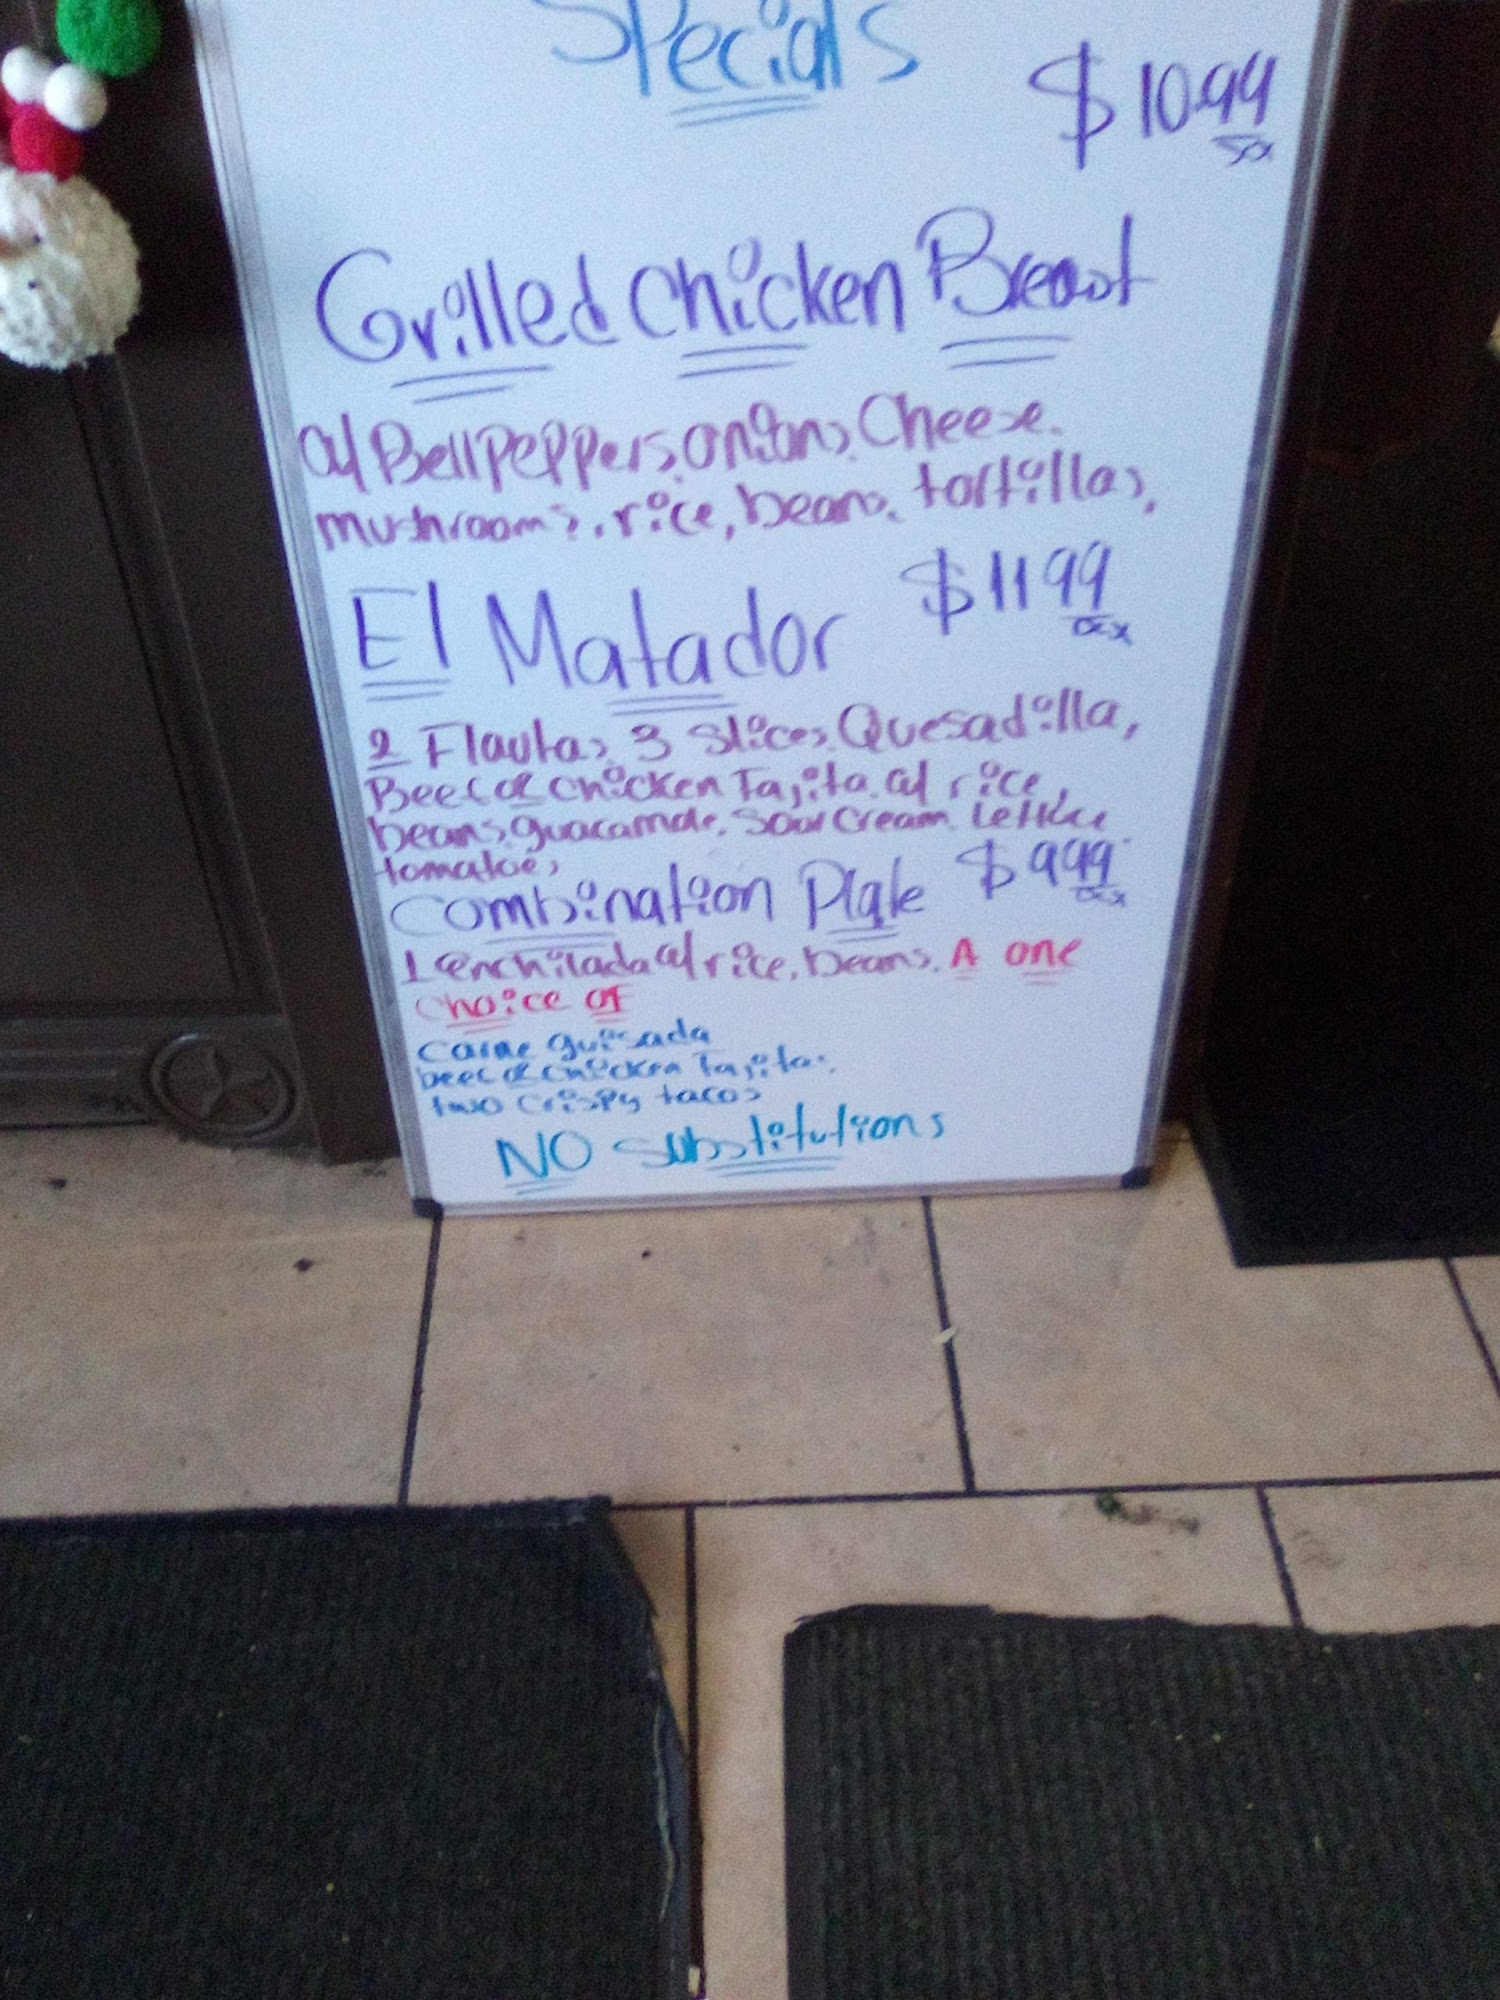 Specials
$10.99
Grilled Chicken Breast
w/ Bell Peppers, onions, Cheese.
mushrooms, rice, beans, tortillas,
El Matador $11 99
2 Flautas, 3 Slices, Quesadilla,
Beef or chicken Fajita w/ rice,
beans, guacamole, sour cream, lettuce
tomatoes
Combination Plate $9 99
1 enchilada w/ rice, beans. A one
choice of
carne guisada
beef or chicken Fajita.
two crispy tacos
NO substitutions